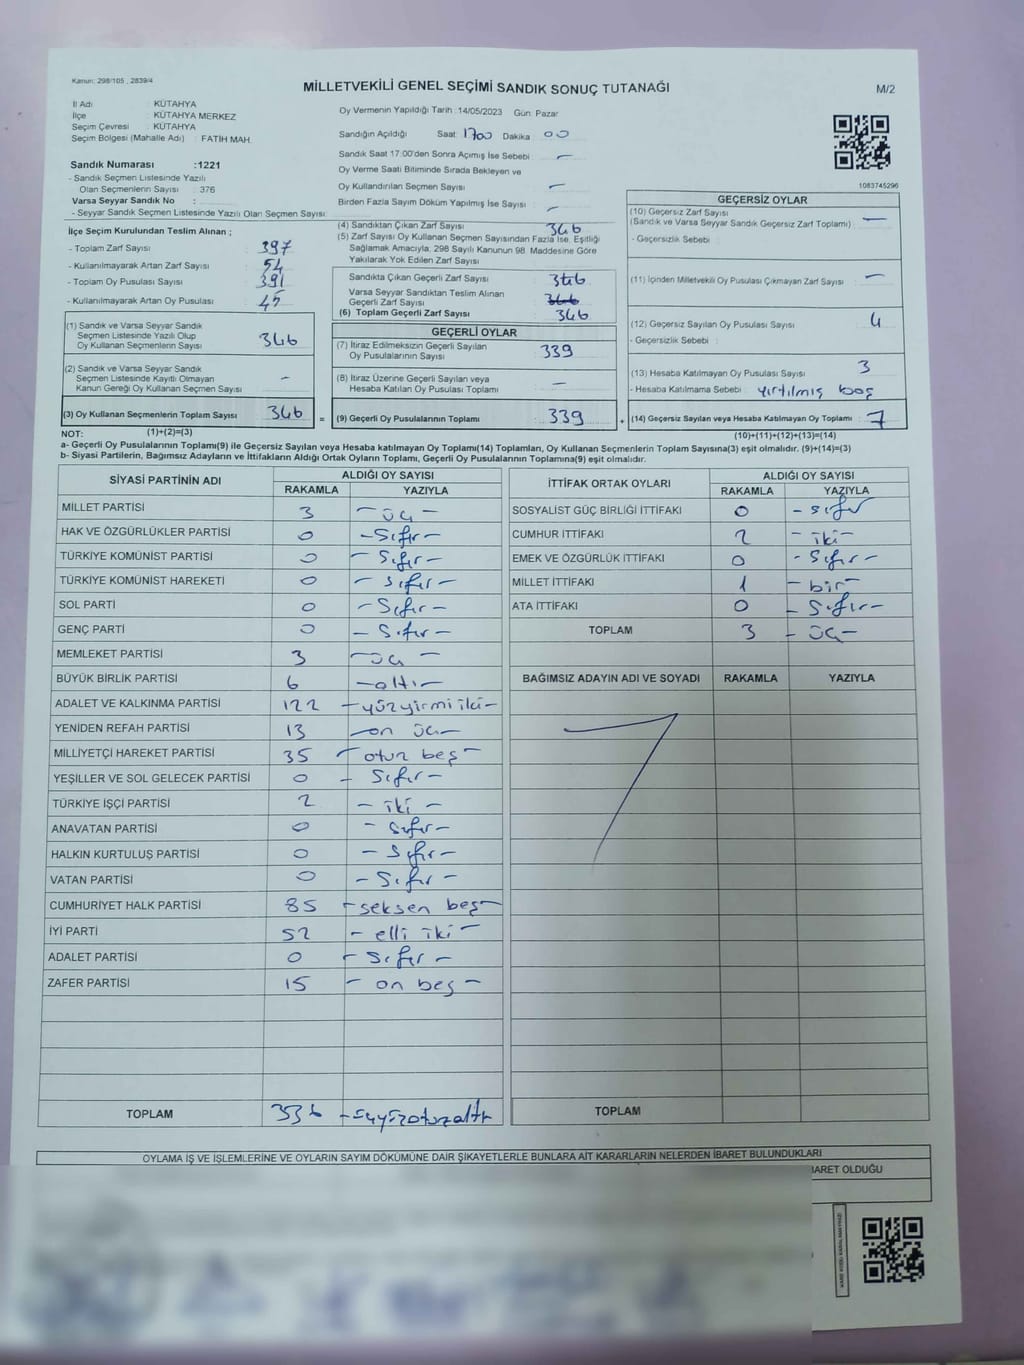 Kanun: 298/105 , 2839/4
MİLLETVEKİLİ GENEL SEÇİMİ SANDIK SONUÇ TUTANAĞI
M/2
İl Adı : KÜTAHYA
İlçe : KÜTAHYA MERKEZ
Seçim Çevresi : KÜTAHYA
Seçim Bölgesi (Mahalle Adı) : FATİH MAH.
Oy Vermenin Yapıldığı Tarih :14/05/2023 Gün: Pazar
Sandığın Açıldığı Saat: 1700 Dakika : 00
Sandık Saat 17:00'den Sonra Açımış İse Sebebi : —
Oy Verme Saati Bitiminde Sırada Bekleyen ve
Oy Kullandırılan Seçmen Sayısı : —
Birden Fazla Sayım Döküm Yapılmış İse Sayısı : —
1083745296
Sandık Numarası :1221
- Sandık Seçmen Listesinde Yazılı
Olan Seçmenlerin Sayısı : 376
Varsa Seyyar Sandık No :
- Seyyar Sandık Seçmen Listesinde Yazılı Olan Seçmen Sayısı:
İlçe Seçim Kurulundan Teslim Alınan ;
- Toplam Zarf Sayısı : 397
- Kullanılmayarak Artan Zarf Sayısı : 54
- Toplam Oy Pusulası Sayısı : 391
- Kullanılmayarak Artan Oy Pusulası : 45
(1) Sandık ve Varsa Seyyar Sandık
Seçmen Listesinde Yazılı Olup
Oy Kullanan Seçmenlerin Sayısı : 346
(2) Sandık ve Varsa Seyyar Sandık
Seçmen Listesinde Kayıtlı Olmayan
Kanun Gereği Oy Kullanan Seçmen Sayısı : -
(3) Oy Kullanan Seçmenlerin Toplam Sayısı : 346 =
(1)+(2)=(3)
(4) Sandıktan Çıkan Zarf Sayısı : 346
(5) Zarf Sayısı Oy Kullanan Seçmen Sayısından Fazla İse, Eşitliği
Sağlamak Amacıyla, 298 Sayılı Kanunun 98. Maddesine Göre
Yakılarak Yok Edilen Zarf Sayısı :
Sandıkta Çıkan Geçerli Zarf Sayısı : 346
Varsa Seyyar Sandıktan Teslim Alınan
Geçerli Zarf Sayısı : 346
(6) Toplam Geçerli Zarf Sayısı : 346
GEÇERLİ OYLAR
(7) İtiraz Edilmeksizin Geçerli Sayılan
Oy Pusulalarının Sayısı : 339
(8) İtiraz Üzerine Geçerli Sayılan veya
Hesaba Katılan Oy Pusulası Toplamı : —
(9) Geçerli Oy Pusulalarının Toplamı : 339 +
GEÇERSİZ OYLAR
(10) Geçersiz Zarf Sayısı
(Sandık ve Varsa Seyyar Sandık Geçersiz Zarf Toplamı) : —
- Geçersizlik Sebebi :
(11) İçinden Milletvekili Oy Pusulası Çıkmayan Zarf Sayısı : —
(12) Geçersiz Sayılan Oy Pusulası Sayısı : 4
- Geçersizlik Sebebi :
(13) Hesaba Katılmayan Oy Pusulası Sayısı : 3
- Hesaba Katılmama Sebebi : Yırtılmış boş
(14) Geçersiz Sayılan veya Hesaba Katılmayan Oy Toplamı : 7
(10)+(11)+(12)+(13)=(14)
NOT:
a- Geçerli Oy Pusulalarının Toplamı(9) ile Geçersiz Sayılan veya Hesaba katılmayan Oy Toplamı(14) Toplamları, Oy Kullanan Seçmenlerin Toplam Sayısına(3) eşit olmalıdır. (9)+(14)=(3)
b- Siyasi Partilerin, Bağımsız Adayların ve İttifakların Aldığı Ortak Oyların Toplamı, Geçerli Oy Pusulalarının Toplamına(9) eşit olmalıdır.
SİYASİ PARTİNİN ADI ALDIĞI OY SAYISI
RAKAMLA YAZIYLA
MİLLET PARTİSİ 3 - üç -
HAK VE ÖZGÜRLÜKLER PARTİSİ 0 - Sıfır -
TÜRKİYE KOMÜNİST PARTİSİ 0 - Sıfır -
TÜRKİYE KOMÜNİST HAREKETİ 0 - Sıfır -
SOL PARTİ 0 - Sıfır -
GENÇ PARTİ 0 - Sıfır -
MEMLEKET PARTİSİ 3 - üç -
BÜYÜK BİRLİK PARTİSİ 6 - altı -
ADALET VE KALKINMA PARTİSİ 122 - yüzyirmi iki -
YENİDEN REFAH PARTİSİ 13 - on üç -
MİLLİYETÇİ HAREKET PARTİSİ 35 - otuz beş -
YEŞİLLER VE SOL GELECEK PARTİSİ 0 - Sıfır -
TÜRKİYE İŞÇİ PARTİSİ 2 - iki -
ANAVATAN PARTİSİ 0 - Sıfır -
HALKIN KURTULUŞ PARTİSİ 0 - Sıfır -
VATAN PARTİSİ 0 - Sıfır -
CUMHURİYET HALK PARTİSİ 85 - seksen beş -
İYİ PARTİ 52 - elli iki -
ADALET PARTİSİ 0 - Sıfır -
ZAFER PARTİSİ 15 - on beş -
TOPLAM 336 - üçyüzotuzaltı
İTTİFAK ORTAK OYLARI ALDIĞI OY SAYISI
RAKAMLA YAZIYLA
SOSYALİST GÜÇ BİRLİĞİ İTTİFAKI 0 - Sıfır
CUMHUR İTTİFAKI 2 - iki -
EMEK VE ÖZGÜRLÜK İTTİFAKI 0 - Sıfır -
MİLLET İTTİFAKI 1 - bir -
ATA İTTİFAKI 0 - Sıfır -
TOPLAM 3 - üç -
BAĞIMSIZ ADAYIN ADI VE SOYADI RAKAMLA YAZIYLA
TOPLAM
OYLAMA İŞ VE İŞLEMLERİNE VE OYLARIN SAYIM DÖKÜMÜNE DAİR ŞİKAYETLERLE BUNLARA AİT KARARLARIN NELERDEN İBARET BULUNDUKLARI
İBARET OLDUĞU